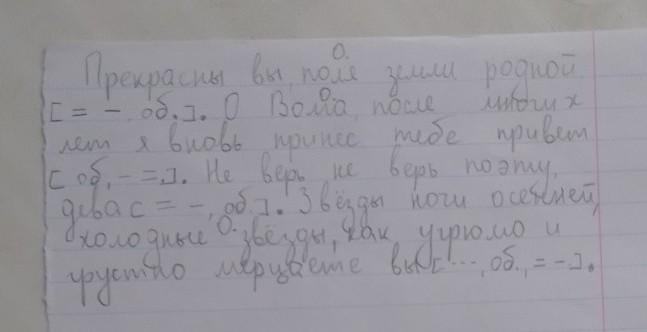 О.
Прекрасны вы, поле земли родной
[= –, об.]. О Волга, после многих
О.
лет я вновь принес тебе привет
[об, – =]. Не верь не верь поэту,
дева [= –, об.]. Звёзды ночи осенней,
О.
холодные звёзды, как угрюмо и
грустно мерцаете вы [..., об., = –].